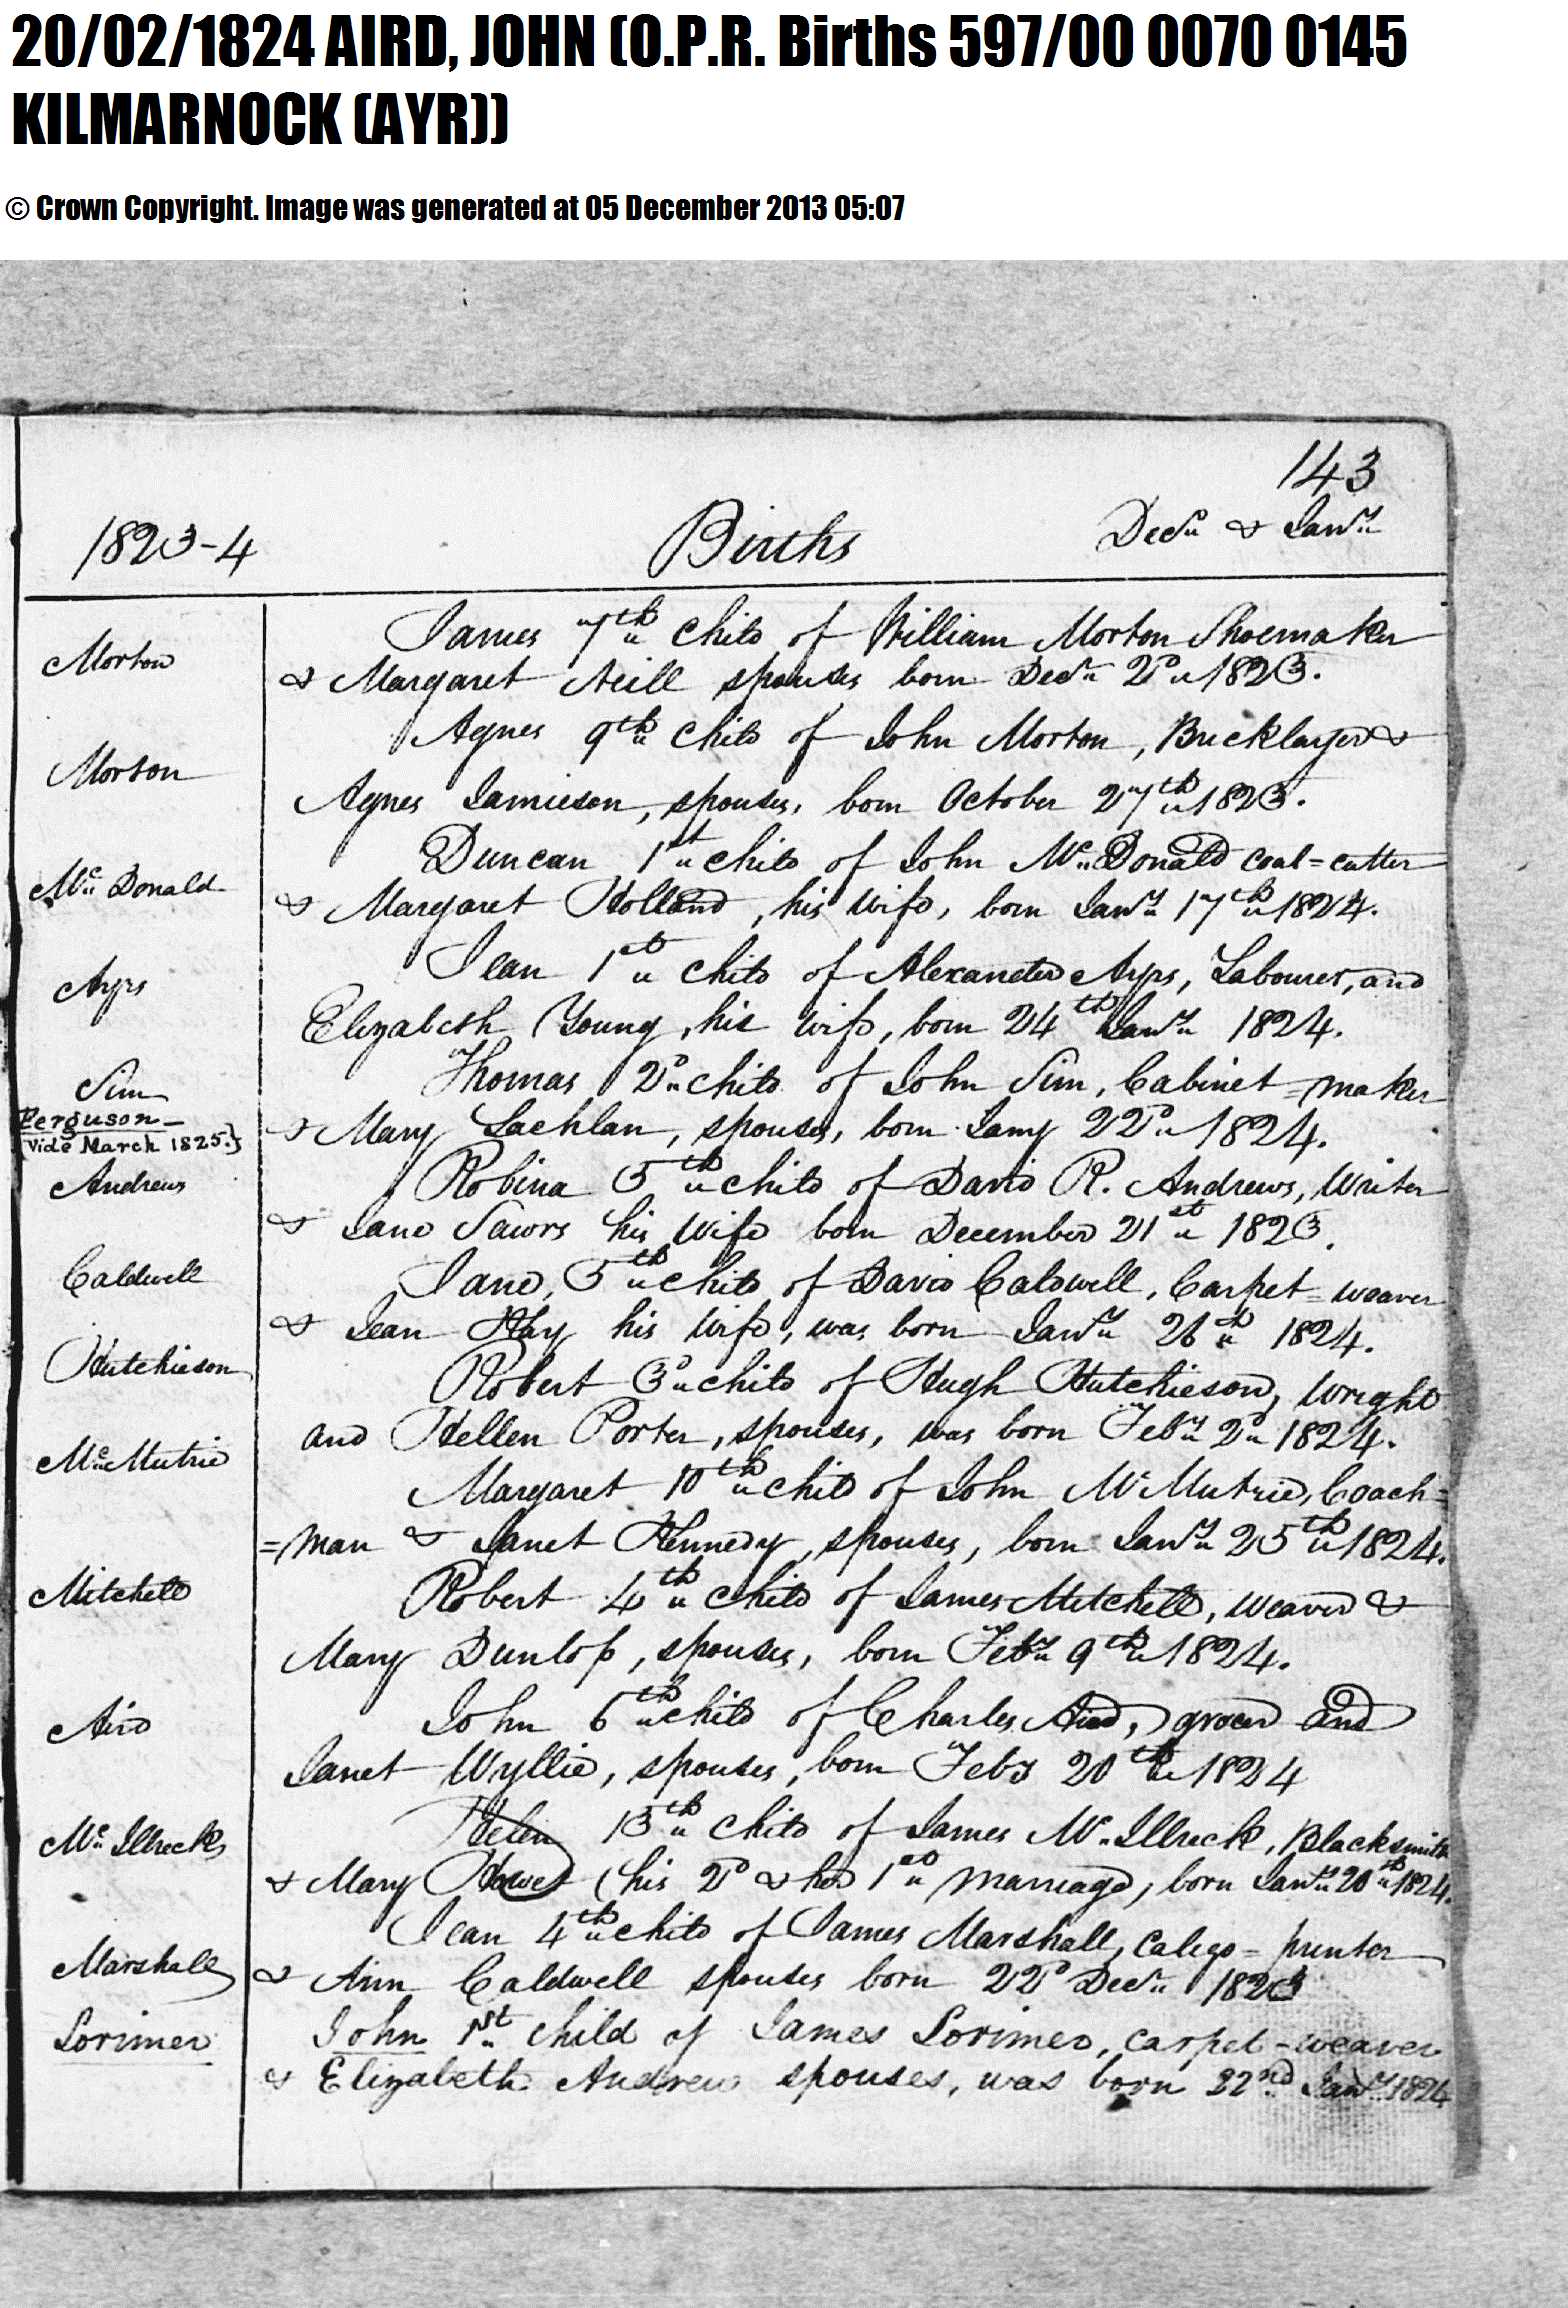 20/02/1824 AIRD, JOHN (O.P.R. Births 597/00 0070 0145
KILMARNOCK (AYR))
© Crown Copyright. Image was generated at 05 December 2013 05:07
143
1823-4 Births Decr & Jany
Morton
James 7th child of William Morton Shoemaker
& Margaret Neill spouses born Decr 2d 1823.
Morton
Agnes 9th child of John Morton, Bricklayer &
Agnes Jamieson, spouses, born October 27th 1823.
Mc Donald
Duncan 1st child of John Mc Donald coal=cutter
& Margaret Holland, his wife, born Jany 17th 1824.
Ayrs
Jean 1st child of Alexander Ayrs, Labourer, and
Elizabeth Young, his wife, born 24th Jany 1824.
Sim
Thomas 2d child of John Sim, Cabinet=maker
& Mary Lachlan, spouses, born Jany 22d 1824.
Ferguson
(Vide March 1825.)
Andrews
Robina 5th child of David R. Andrews, Writer
& Jane his wife born December 21st 1823.
Caldwell
Jane, 5th child of David Caldwell, Carpet=weaver
& Jean Hay his wife, was born Jany 26th 1824.
Hutchieson
Robert 3d child of Hugh Hutchieson, Wright
and Hellen Porter, spouses, was born Feby 2d 1824.
Mc Mutrie
Margaret 10th child of John Mc Mutrie, Coach=
=man & Janet Kennedy, spouses, born Jany 25th 1824.
Mitchell
Robert 4th child of James Mitchell, weaver &
Mary Dunlop, spouses, born Feby 9th 1824.
Aird
John 6th child of Charles Aird, grocer and
Janet Wyllie, spouses, born Feby 20th 1824
Mc Illreck
Helen 13th child of James Mc Illreck, Blacksmith
& Mary Howet (his 2d & her 1st marriage, born Jany 20th 1824.
Marshall
Jean 4th child of James Marshall, calico=printer
& Ann Caldwell spouses born 22d Decr 1823
Lorimer
John 1st child of James Lorimer, carpet-weaver
& Elizabeth Andrew spouses, was born 22nd Jany 1824